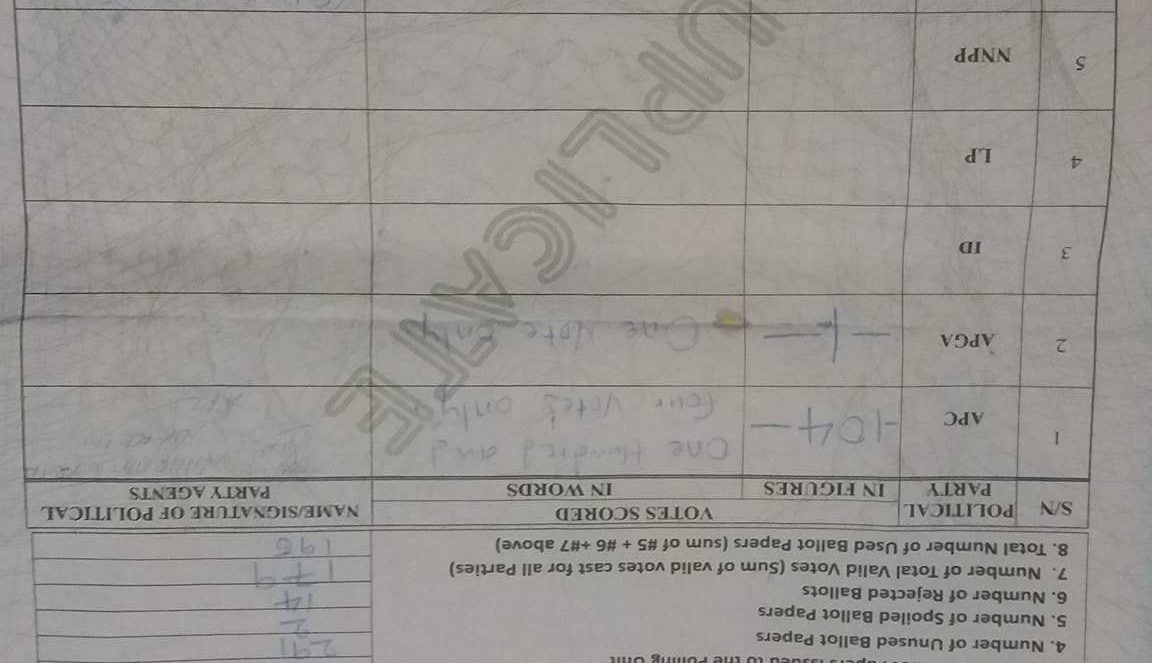 issued to the Polling Unit
4. Number of Unused Ballot Papers 291
5. Number of Spoiled Ballot Papers 2
6. Number of Rejected Ballots 14
7. Number of Total Valid Votes (Sum of valid votes cast for all Parties) 179
8. Total Number of Used Ballot Papers (sum of #5 + #6 +#7 above)
S/N POLITICAL PARTY VOTES SCORED NAME/SIGNATURE OF POLITICAL PARTY AGENTS
IN FIGURES IN WORDS
1 APC -104- One Hundred and
Four Votes only APC
2 APGA -1- One Vote Only
3 ID
4 LP
5 NNPP
DUPLICATE